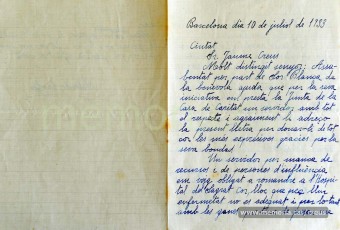 Barcelona dia 10 de juliol de 1933
Ciutat
Sr. Jaume Creus
Molt distingit senyor: Assa-
bentat per part de Sor Blanca de
la bonívola ajuda que per la seva
iniciativa em presta la Junta de la
Casa de Caritat un servidor amb tot
el respecte i agraiment li adreço
la present lletra per donar-li de tot
cor les mes expressives gracies per la
seva bondat.
Un servidor per manca de
recursos i de persones d'influència
em veig obligat a romandre a l'Hospi-
tal del Sagrat Cor, lloc que per
enfermetat no es adequat i per lo tant
amb les ganes